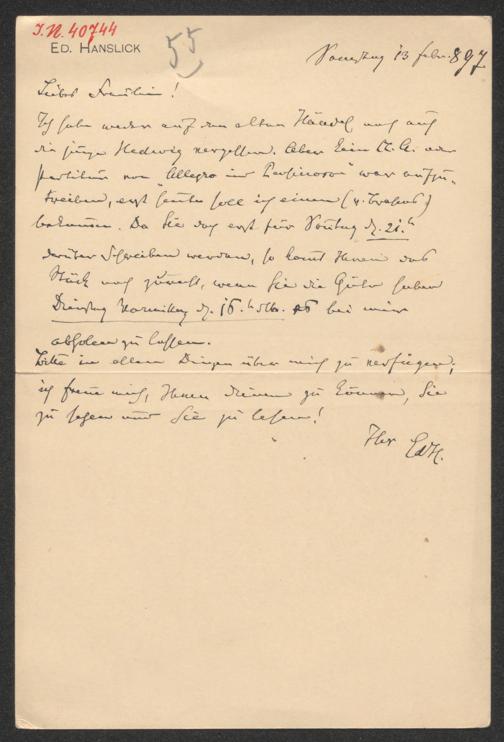 J.N. 40744
ED. HANSLICK
55
Samstag 13 Febr. 897
Liebes Fräulein!
Ich habe weder auf den alten Händel noch auf
die junge Hedwig vergessen. Aber kein Kl. A. oder
Partitur von "Allegro und Pensieroso" war aufzu-
treiben, erst heute soll ich einen (v. Brahms)
bekommen. Da Sie doch erst für Sontag d. 21.
darüber schreiben werden, so kommt Ihnen das
Stück noch zurecht, wenn Sie die Güte haben
Dienstag Vormittag d. 16. bei mir
abholen zu lassen.
Bitte in allen Dingen über mich zu verfügen,
ich freue mich, Ihnen dienen zu können, Sie
zu sehen und Sie zu lesen!
Ihr
EdH.